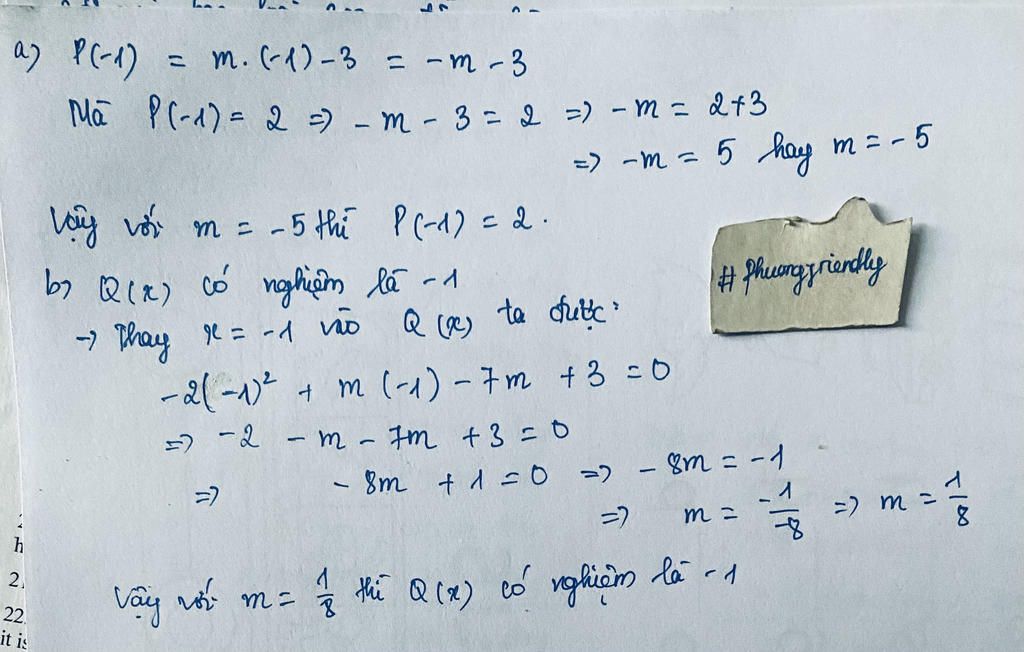 a) P(-1) = m. (-1) - 3 = -m - 3
Mà P(-1) = 2 => -m - 3 = 2 => -m = 2+3
=> -m = 5 hay m = -5
Vậy với m = -5 thì P(-1) = 2.
# Phuongfriendly
b) Q(x) có nghiệm là -1
→ Thay x = -1 vào Q(x) ta được:
-2(-1)² + m(-1) - 7m + 3 = 0
=> -2 - m - 7m + 3 = 0
=> -8m + 1 = 0 => -8m = -1
=> m = -1/-8 => m = 1/8
Vậy với m = 1/8 thì Q(x) có nghiệm là -1
2
h
2.
22
it is